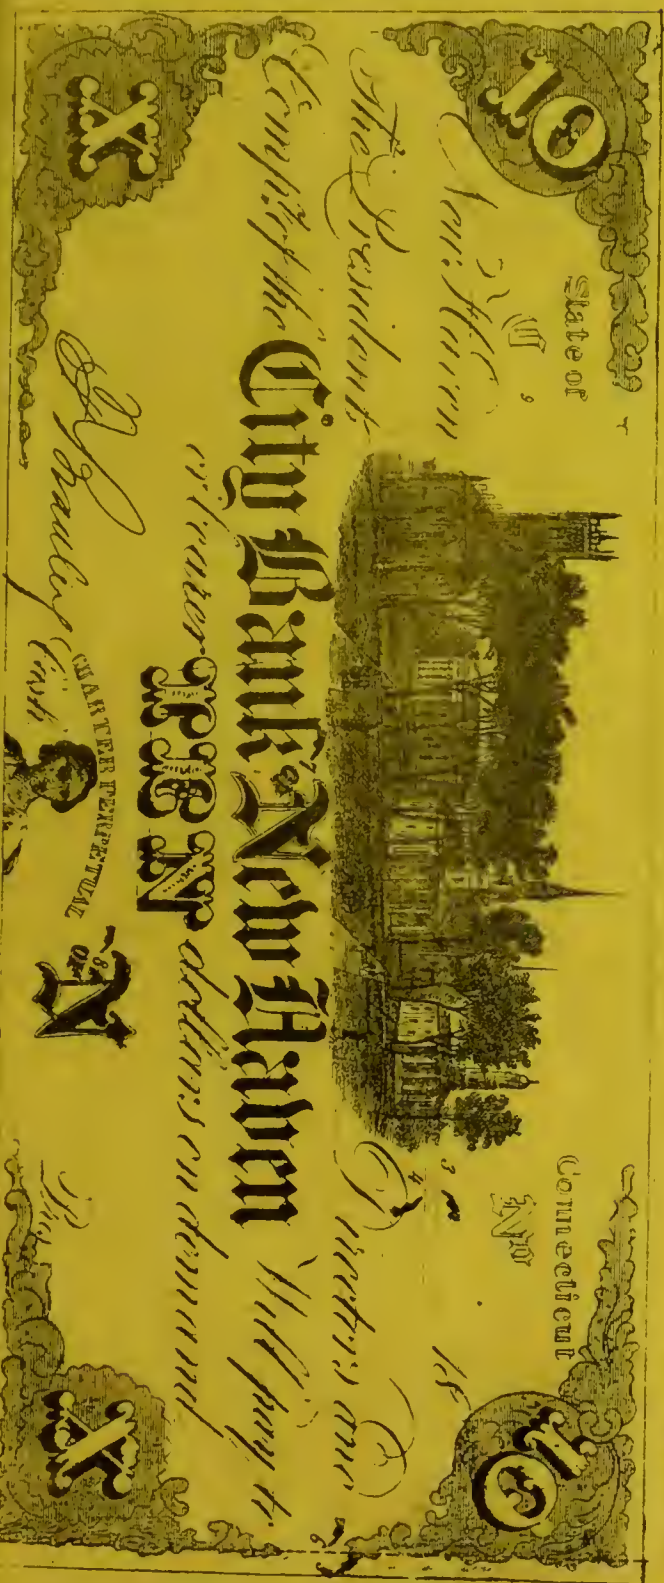 10 State of Connecticut 10
No
New Haven 18
The President Directors and
Compy. of the City Bank of New Haven Will pay to
or bearer TEN dollars on demand
Cash. CHARTER PERPETUAL Pres
X X